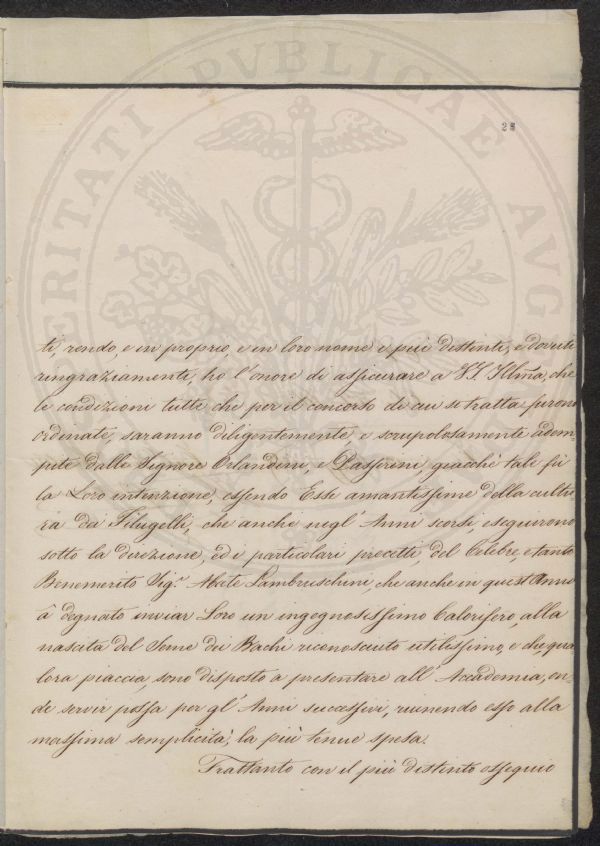 PROSPERITATI PVBLICAE AVGENDAE
ti, rendo, e in proprio, e in loro nome i più distinti, e dovuti
ringraziamenti, ho l'onore di assicurare a VS. Illma, che
le condizioni tutte che per il concorso di cui si tratta furono
ordinate, saranno diligentemente, e scrupolosamente adem-
pite dalle Signore Orlandini, e Passerini giacchè tale fù
la Loro intenzione, essendo Esse amantissime della cultu-
ra dei Filugelli, che anche negl'Anni scorsi, eseguirono
sotto la direzione, ed i particolari precetti, del Celebre, e tanto
Benemerito Sig.r Abate Lambruschini, che anche in quest'Anno
à degnato inviar Loro un ingegnosissimo Calorifero, alla
nascita del Seme dei Bachi riconosciuto utilissimo, e che, qua
lora piaccia, sono disposto a presentare all'Accademia, on-
de servir possa per gl'Anni successivi, riunendo esso alla
massima semplicità, la più tenue spesa.
Frattanto con il più distinto ossequio